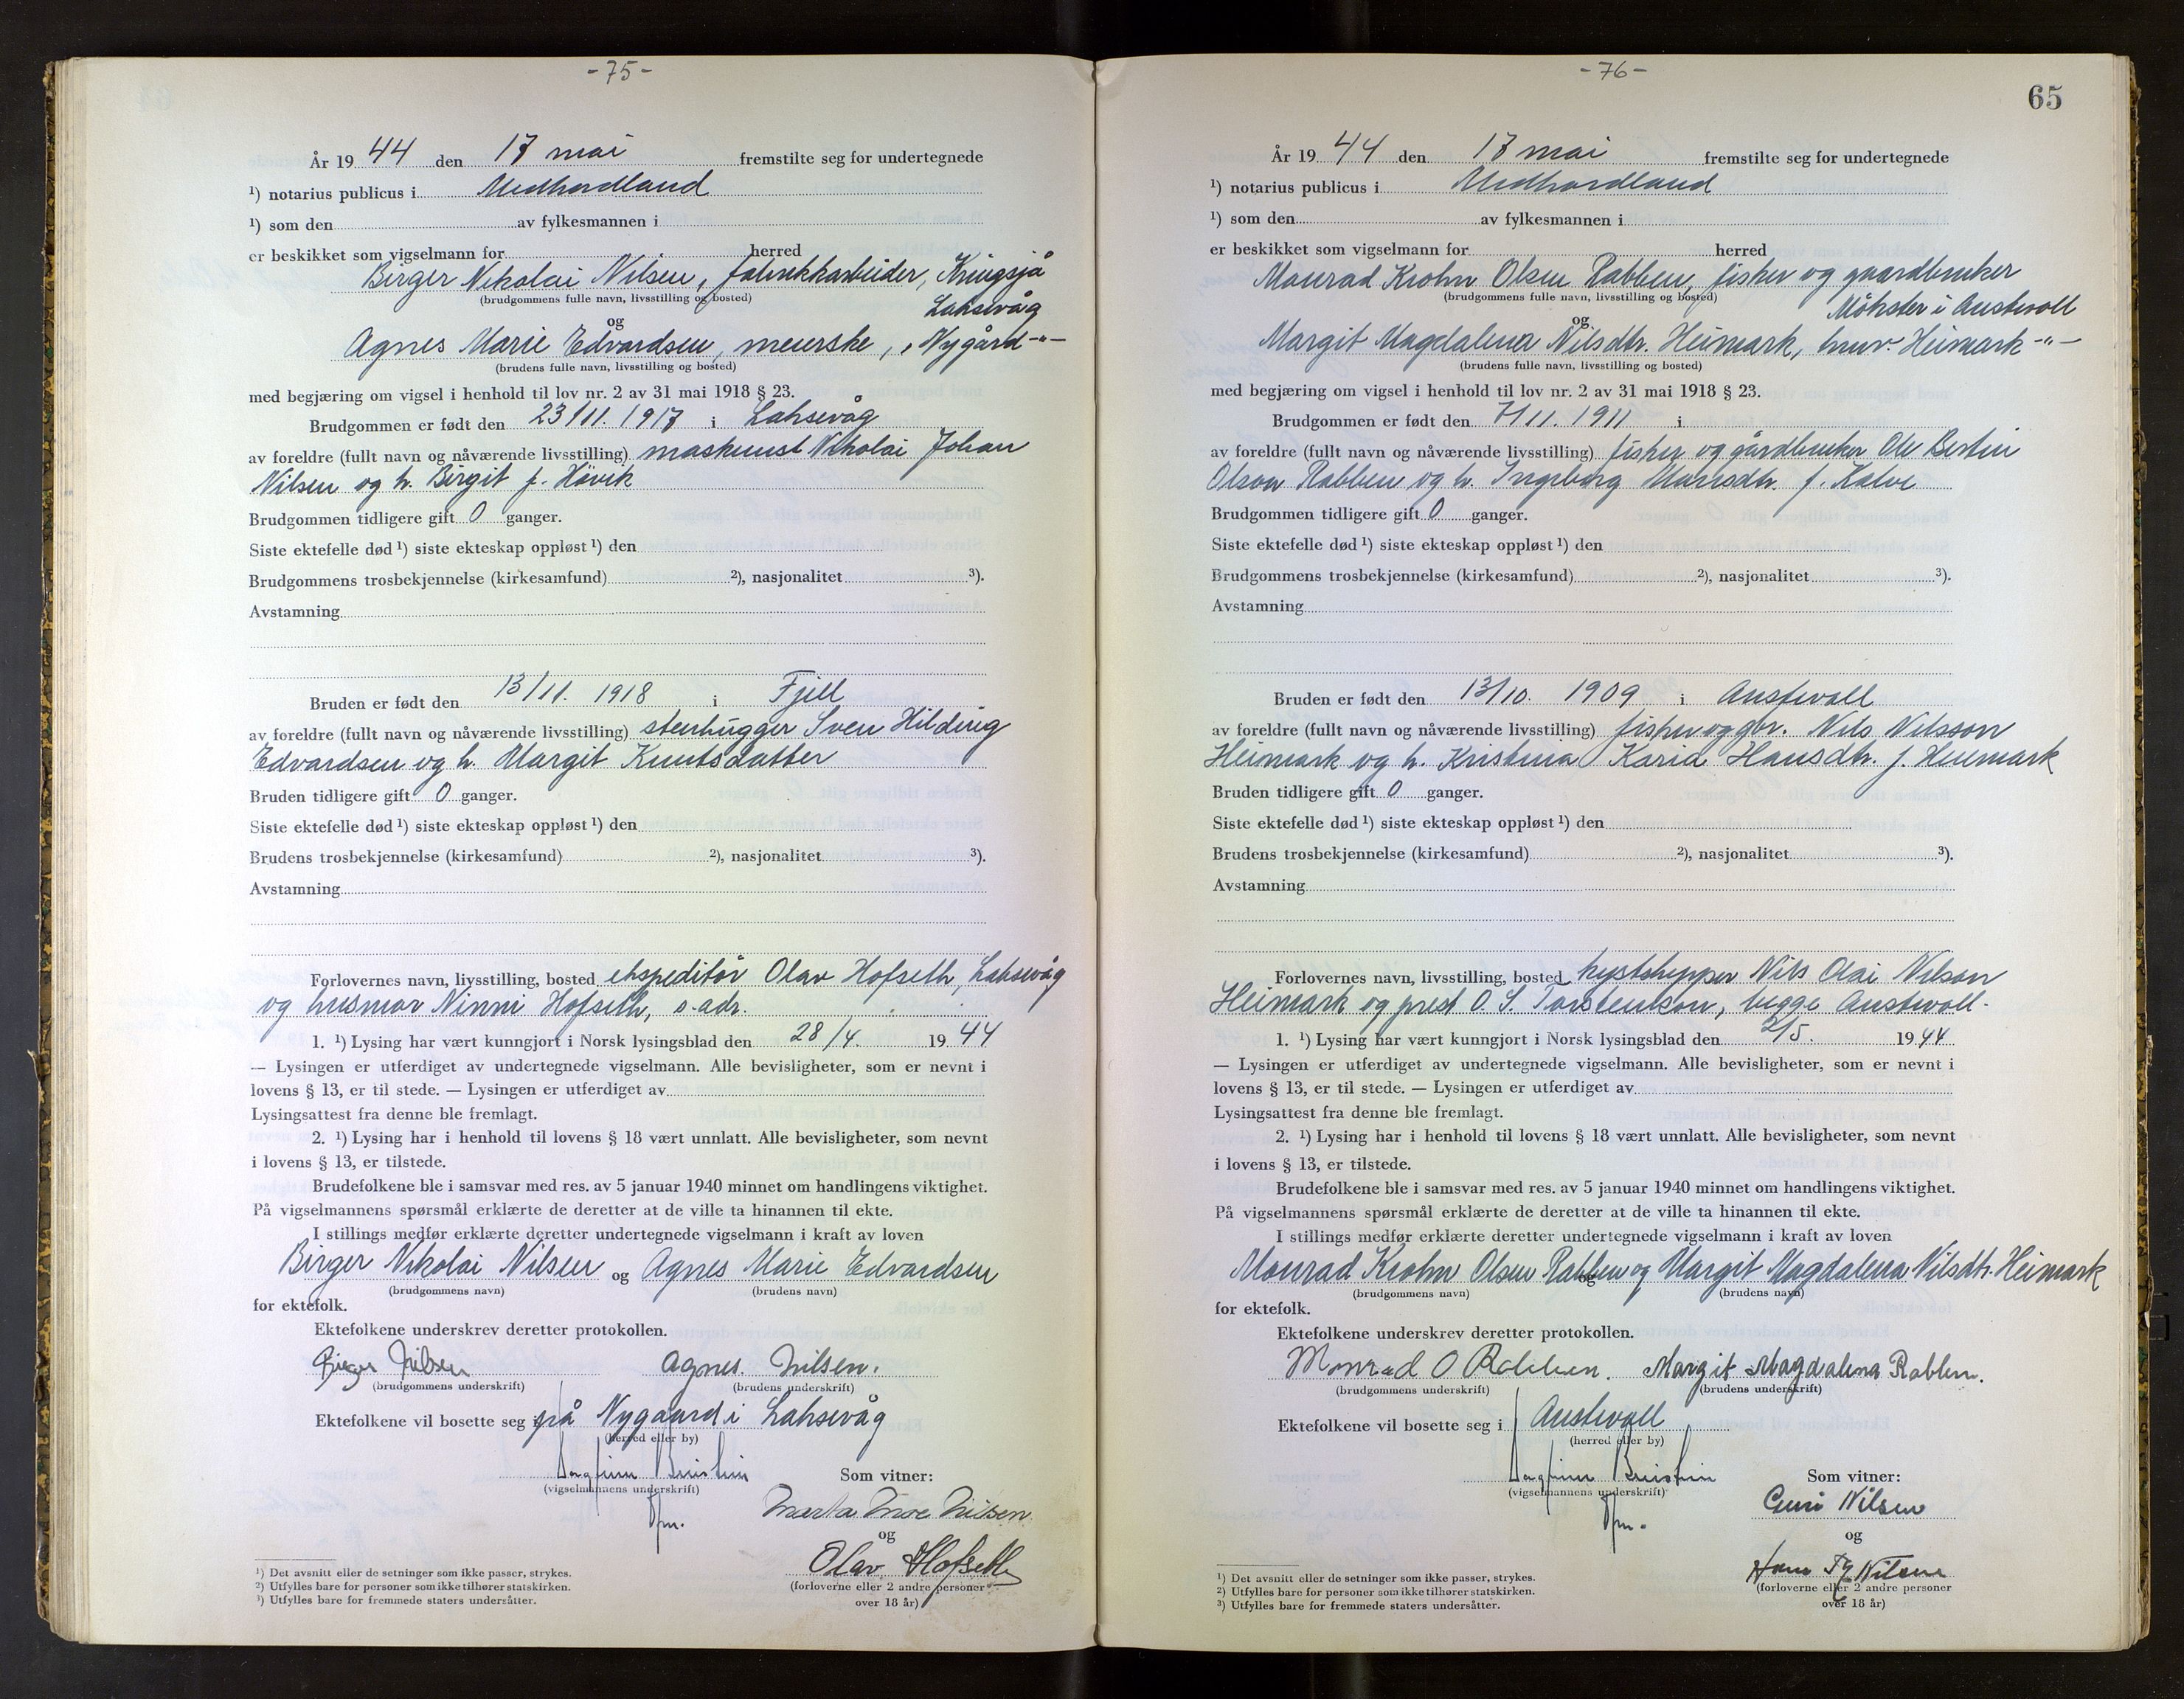 -75-
År 19 44 den 17 mai fremstilte seg for undertegnede
¹) notarius publicus i Midhordland
¹) som den av fylkesmannen i
er beskikket som vigselmann for herred
Birger Nikolai Nilsen, fabrikkarbeider, Kringsjå
(brudgommens fulle navn, livsstilling og bosted)
Laksevåg
og
Agnes Marie Edvardsen, meierske, Nygård -"-
(brudens fulle navn, livsstilling og bosted)
med begjæring om vigsel i henhold til lov nr. 2 av 31 mai 1918 § 23.
Brudgommen er født den 23/11. 1917 i Laksevåg
av foreldre (fullt navn og nåværende livsstilling) maskinist Nikolai Johan
Nilsen og h. Birgit f. Hövik
Brudgommen tidligere gift 0 ganger.
Siste ektefelle død ¹) siste ekteskap oppløst ¹) den
Brudgommens trosbekjennelse (kirkesamfund) ²), nasjonalitet ³).
Avstamning
Bruden er født den 13/11. 1918 i Fjell
av foreldre (fullt navn og nåværende livsstilling) stenhugger Sven Hilding
Edvardsen og h. Margit Knutsdatter
Bruden tidligere gift 0 ganger.
Siste ektefelle død ¹) siste ekteskap oppløst ¹) den
Brudens trosbekjennelse (kirkesamfund) ²), nasjonalitet ³).
Avstamning
Forlovernes navn, livsstilling, bosted ekspeditör Olav Hofseth, Laksevåg
og husmor Ninni Hofseth, s. adr.
1. ¹) Lysing har vært kunngjort i Norsk lysingsblad den 28/4. 19 44
— Lysingen er utferdiget av undertegnede vigselmann. Alle bevisligheter, som er nevnt i
lovens § 13, er til stede. — Lysingen er utferdiget av
Lysingsattest fra denne ble fremlagt.
2. ¹) Lysing har i henhold til lovens § 18 vært unnlatt. Alle bevisligheter, som nevnt
i lovens § 13, er tilstede.
Brudefolkene ble i samsvar med res. av 5 januar 1940 minnet om handlingens viktighet.
På vigselmannens spørsmål erklærte de deretter at de ville ta hinannen til ekte.
I stillings medfør erklærte deretter undertegnede vigselmann i kraft av loven
Birger Nikolai Nilsen og Agnes Marie Edvardsen
(brudgommens navn) (brudens navn)
for ektefolk.
Ektefolkene underskrev deretter protokollen.
Birger Nilsen Agnes. Nilsen.
(brudgommens underskrift) (brudens underskrift)
Ektefolkene vil bosette seg i på Nygaard i Laksevåg
(herred eller by)
(vigselmannens underskrift)
Som vitner:
Marta Moe Nilsen
og
Olav Hofseth
(forloverne eller 2 andre personer
over 18 år)
¹) Det avsnitt eller de setninger som ikke passer, strykes.
²) Utfylles bare for personer som ikke tilhører statskirken.
³) Utfylles bare for fremmede staters undersåtter.
-76-
65
År 19 44 den 17 mai fremstilte seg for undertegnede
¹) notarius publicus i Midhordland
¹) som den av fylkesmannen i
er beskikket som vigselmann for herred
Monrad Krohn Olsen Rabben, fisker og gaardbruker
(brudgommens fulle navn, livsstilling og bosted)
Mökster i Austevoll
og
Margit Magdalena Nilsdtr. Heimark, husv. Heimark -"-
(brudens fulle navn, livsstilling og bosted)
med begjæring om vigsel i henhold til lov nr. 2 av 31 mai 1918 § 23.
Brudgommen er født den 7/11. 1911 i
av foreldre (fullt navn og nåværende livsstilling) fisker og gårdbruker Ole Bertin
Olson Rabben og h. Ingeborg Hansdtr. f. Kalve
Brudgommen tidligere gift 0 ganger.
Siste ektefelle død ¹) siste ekteskap oppløst ¹) den
Brudgommens trosbekjennelse (kirkesamfund) ²), nasjonalitet ³).
Avstamning
Bruden er født den 13/10. 1909 i Austevoll
av foreldre (fullt navn og nåværende livsstilling) fisker og gbr. Nils Nilsson
Heimark og h. Kristina Karia Hansdtr. f. Heimark
Bruden tidligere gift 0 ganger.
Siste ektefelle død ¹) siste ekteskap oppløst ¹) den
Brudens trosbekjennelse (kirkesamfund) ²), nasjonalitet ³).
Avstamning
Forlovernes navn, livsstilling, bosted kystskipper Nils Olai Nilson
Heimark og prest O. S. Torstenson, begge Austevoll.
1. ¹) Lysing har vært kunngjort i Norsk lysingsblad den 2/5. 19 44
— Lysingen er utferdiget av undertegnede vigselmann. Alle bevisligheter, som er nevnt i
lovens § 13, er til stede. — Lysingen er utferdiget av
Lysingsattest fra denne ble fremlagt.
2. ¹) Lysing har i henhold til lovens § 18 vært unnlatt. Alle bevisligheter, som nevnt
i lovens § 13, er tilstede.
Brudefolkene ble i samsvar med res. av 5 januar 1940 minnet om handlingens viktighet.
På vigselmannens spørsmål erklærte de deretter at de ville ta hinannen til ekte.
I stillings medfør erklærte deretter undertegnede vigselmann i kraft av loven
Monrad Krohn Olsen Rabben og Margit Magdalena Nilsdtr. Heimark
(brudgommens navn) (brudens navn)
for ektefolk.
Ektefolkene underskrev deretter protokollen.
Monrad O Rabben. Margit Magdalena Rabben.
(brudgommens underskrift) (brudens underskrift)
Ektefolkene vil bosette seg i Austevoll
(herred eller by)
(vigselmannens underskrift)
Som vitner:
Guri Nilsen
og
Hans Nilsen
(forloverne eller 2 andre personer
over 18 år)
¹) Det avsnitt eller de setninger som ikke passer, strykes.
²) Utfylles bare for personer som ikke tilhører statskirken.
³) Utfylles bare for fremmede staters undersåtter.